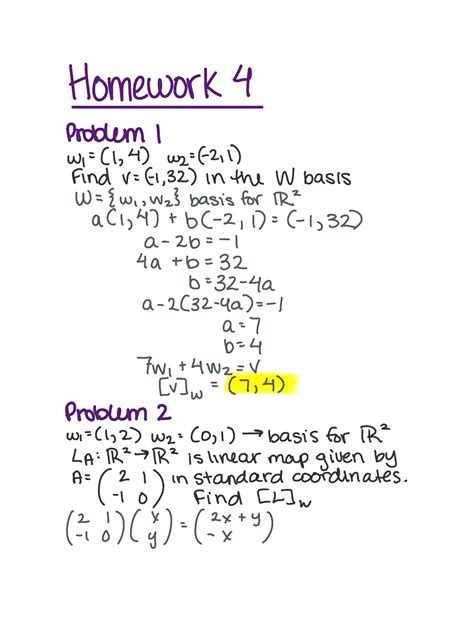 Homework 4
Problem 1
w₁=(1,4) w₂=(-2,1)
Find v=(-1,32) in the W basis
W={w₁,w₂} basis for ℝ²
a(1,4)+b(-2,1)=(-1,32)
a-2b=-1
4a+b=32
b=32-4a
a-2(32-4a)=-1
a=7
b=4
7w₁+4w₂=v
[v]_w=(7,4)
Problem 2
w₁=(1,2) w₂=(0,1)→basis for ℝ²
L_A:ℝ²→ℝ² is linear map given by
A=(2 1
-1 0) in standard coordinates.
Find [L]_w
(2 1 (x = (2x+y
-1 0) y) -x)